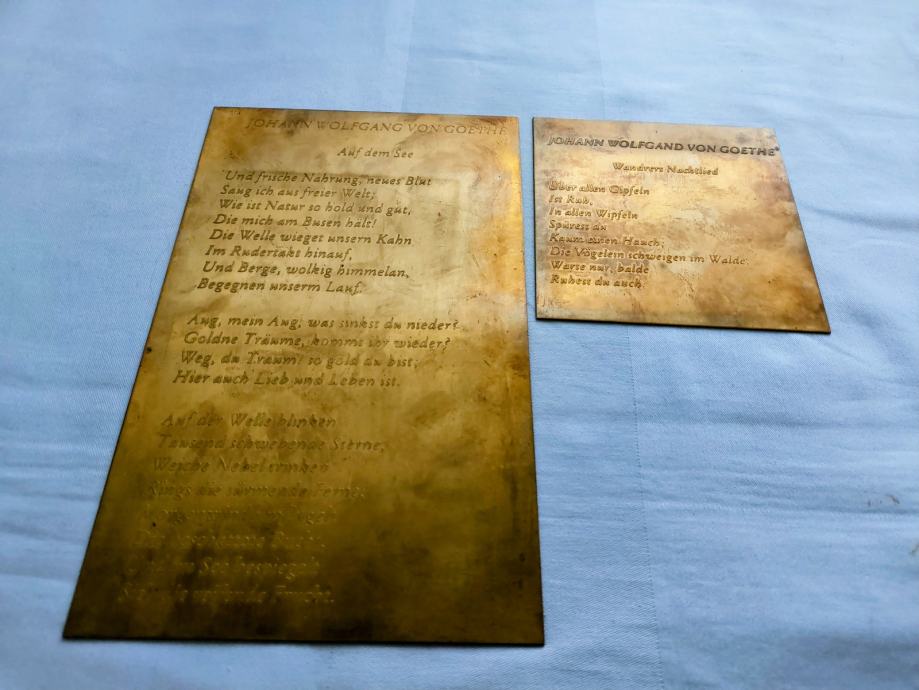 JOHANN WOLFGANG VON GOETHE
Auf dem See
Und frische Nahrung, neues Blut
Saug ich aus freier Welt;
Wie ist Natur so hold und gut,
Die mich am Busen hält!
Die Welle wieget unsern Kahn
Im Rudertakt hinauf,
Und Berge, wolkig himmelan,
Begegnen unserm Lauf.
Aug, mein Aug, was sinkst du nieder?
Goldne Träume, kommt ihr wieder?
Weg, du Traum! so gold du bist;
Hier auch Lieb und Leben ist.
Auf der Welle blinken
Tausend schwebende Sterne,
Weiche Nebel trinken
Rings die türmende Ferne;
Bucht,
See bespiegelt
reifende Frucht.
JOHANN WOLFGAND VON GOETHE
Wandrers Nachtlied
Über allen Gipfeln
Ist Ruh,
In allen Wipfeln
Spürest du
Kaum einen Hauch;
Die Vögelein schweigen im Walde.
Warte nur, balde
Ruhest du auch.